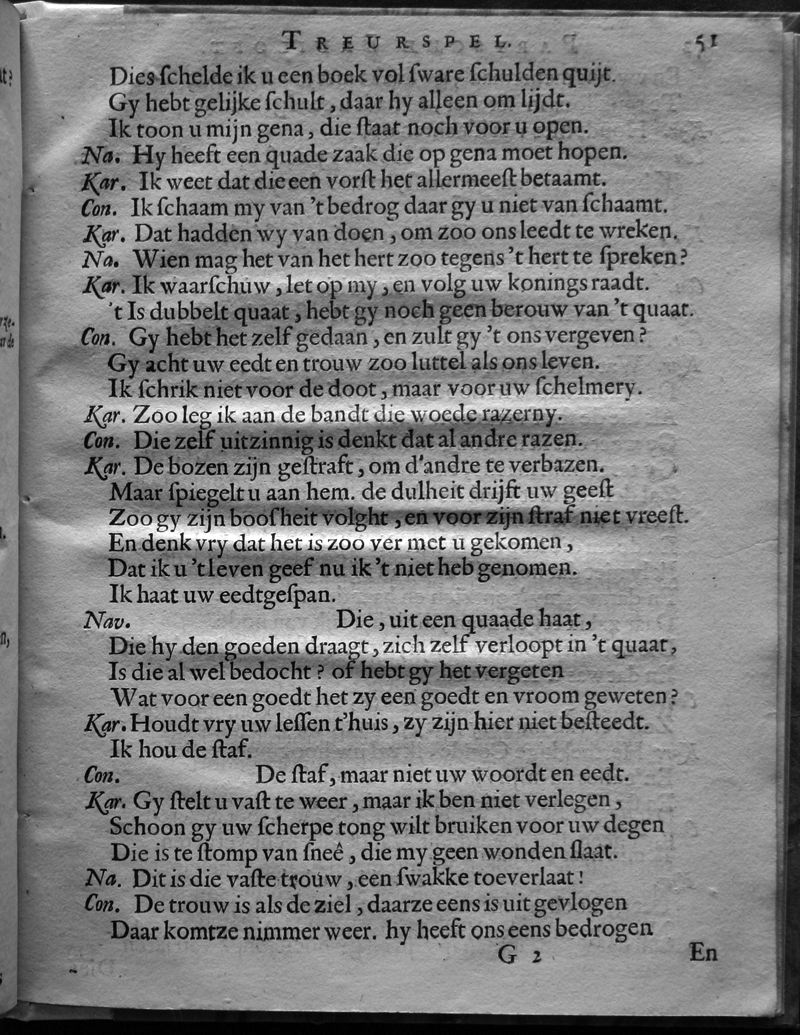 TREURSPEL. 51
Dies ſchelde ik u een boek vol ſware ſchulden quijt.
Gy hebt gelijke ſchult, daar hy alleen om lijdt.
Ik toon u mijn gena, die ſtaat noch voor u open.
Na. Hy heeft een quade zaak die op gena moet hopen.
Kar. Ik weet dat die een vorſt het allermeeſt betaamt.
Con. Ik ſchaam my van 't bedrog daar gy u niet van ſchaamt.
Kar. Dat hadden wy van doen, om zoo ons leedt te wreken.
Na. Wien mag het van het hert zoo tegens 't hert te ſpreken?
Kar. Ik waarſchuw, let op my, en volg uw konings raadt.
't Is dubbelt quaat, hebt gy noch geen berouw van 't quaat.
Con. Gy hebt het zelf gedaan, en zult gy 't ons vergeven?
Gy acht uw eedt en trouw zoo luttel als ons leven.
Ik ſchrik niet voor de doot, maar voor uw ſchelmery.
Kar. Zoo leg ik aan de bandt die woede razerny.
Con. Die zelf uitzinnig is denkt dat al andre razen.
Kar. De bozen zijn geſtraft, om d'andre te verbazen.
Maar ſpiegelt u aan hem. de dulheit drijft uw geeſt
Zoo gy zijn boofheit volght, en voor zijn ſtraf niet vreeſt.
En denk vry dat het is zoo ver met u gekomen,
Dat ik u 't leven geef nu ik 't niet heb genomen.
Ik haat uw eedtgeſpan.
Nav. Die, uit een quaade haat,
Die hy den goeden draagt, zich zelf verloopt in 't quaat,
Is die al wel bedocht? of hebt gy het vergeten
Wat voor een goedt het zy een goedt en vroom geweten?
Kar. Houdt vry uw leſſen t'huis, zy zijn hier niet beſteedt.
Ik hou de ſtaf.
Con. De ſtaf, maar niet uw woordt en eedt.
Kar. Gy ſtelt u vaſt te weer, maar ik ben niet verlegen,
Schoon gy uw ſcherpe tong wilt bruiken voor uw degen
Die is te ſtomp van ſneê, die my geen wonden ſlaat.
Na. Dit is die vaſte trouw, een ſwakke toeverlaat!
Con. De trouw is als de ziel, daarze eens is uit gevlogen
Daar komtze nimmer weer. hy heeft ons eens bedrogen
G 2 En